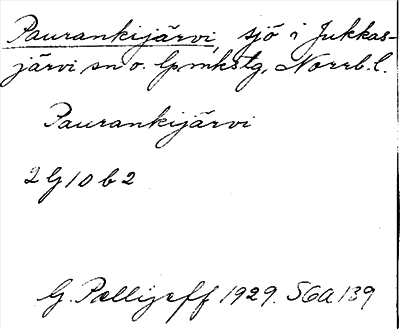 Paurankijärvi, sjö i Jukkas-
järvi sn o. lpmkstg, Norrb. l.
Paurankijärvi
2 G 10 b 2
G. Pellijeff 1929. S6A 139